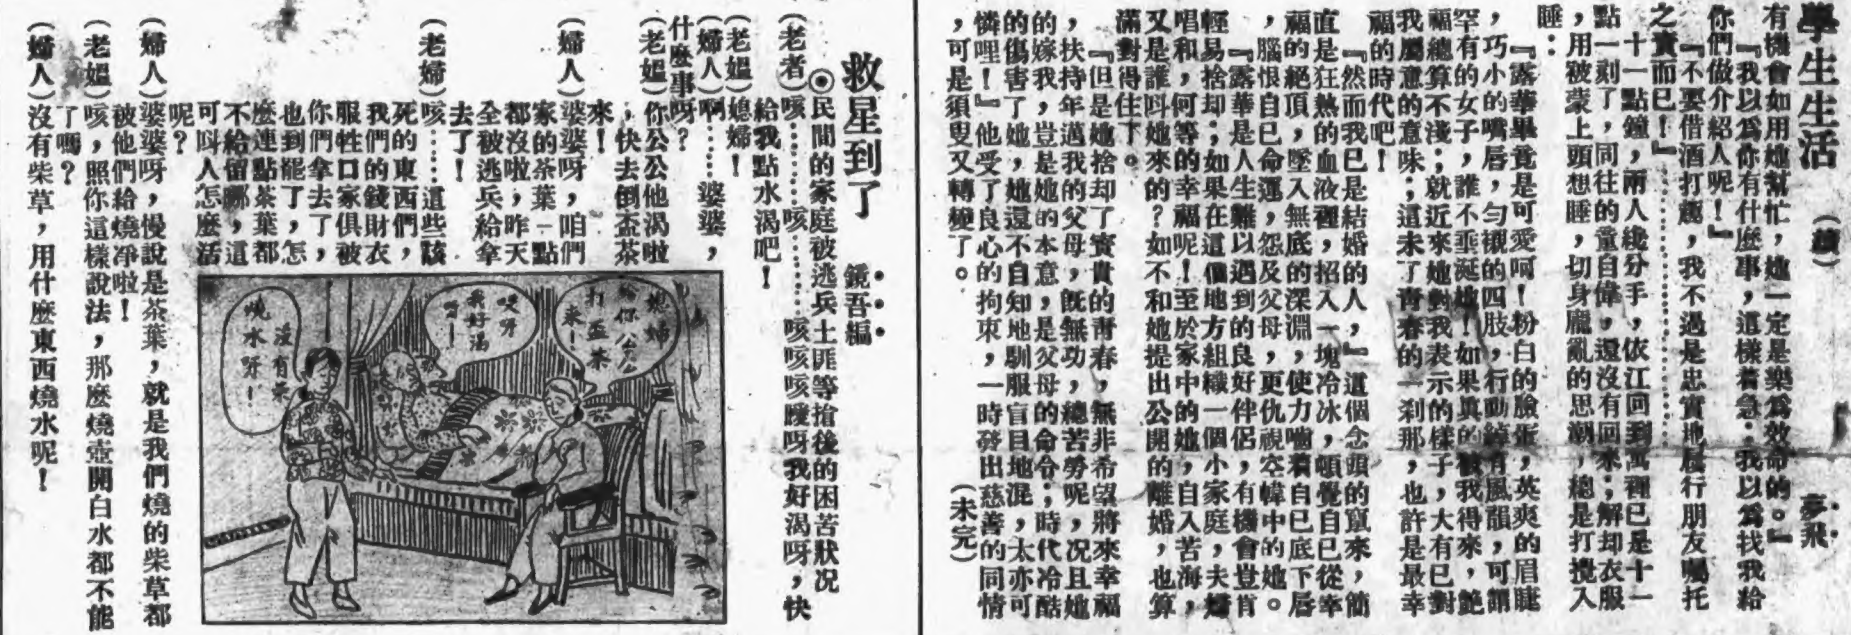 學生生活 (續) 夢飛
有機會如用她幫忙，她一定是樂爲效命的。』
『我以爲你有什麼事，這樣着急；我以爲找我給
你們做介紹人呢！』
『不要借酒打諢，我不過是忠實地履行朋友囑托
之責而已！』…………
十一點鐘，兩人纔分手，依江回到寓裡已是十一
點一刻了，同往的童自偉，還沒有回來；解却衣服
，用被蒙上頭想睡，切身龐亂的思潮，總是打攪入
睡：
『露華畢竟是可愛呵！粉白的臉蛋，英爽的眉睫
，巧小的嘴唇，勻襯的四肢，行動綽有風韻，可謂
罕有的女子，誰不垂涎她！如果真的被我得來，艶
福總算不淺；就近來她對我表示的樣子，大有已對
我屬意的意味；這未了靑春的一刹那，也許是最幸
福的時代吧！
『然而我已是結婚的人，』這個念頭的竄來，簡
直是狂熱的血液裡，招入一塊冷冰，頓覺自已從幸
福的絕頂，墜入無底的深淵，使力嚙着自已底下唇
，腦恨自已命運，怨及父母，更仇視空幃中的她。
『露華是人生難以遇到的良好伴侶，有機會豈肯
輕易捨却；如果在這個地方組織一個小家庭，夫婦
唱和，何等的幸福呢！至於家中的她，自入苦海，
又是誰呌她來的？如不和她提出公開的離婚，也算
滿對得住了。
『但是她捨却了寶貴的靑春，無非希望將來幸福
，扶持年邁我的父母，旣無功，總苦勞呢，况且她
的嫁我，豈是她的本意，是父母的命令；時代冷酷
的傷害了她，她還不自知地馴服盲目地混，太亦可
憐哩！』他受了良心的拘束，一時發出慈善的同情
，可是須臾又轉變了。 (未完)
救星到了 鏡吾編
◉民間的家庭被逃兵土匪等搶後的困苦狀况
(老者)咳………咳………咳咳咳噯呀我好渴呀，快
給我點水渴吧！
(老媼)媳婦！
(婦人)啊……婆婆，
什麼事呀？
(老媼)你公公他渴啦
，快去倒盃茶
來！
(婦人)婆婆呀，咱們
家的茶葉一點
都沒啦，昨天
全被逃兵給拿
去了！
(老婦)咳……這些該
死的東西們，
我們的錢財衣
服牲口家俱被
你們拿去了，
也到罷了，怎
麼連點茶葉都
不給留哪，這
可呌人怎麼活
呢？
(婦人)婆婆呀，慢說是茶葉，就是我們燒的柴草都
被他們給燒凈啦！
(老媼)咳，照你這樣說法，那麼燒壺開白水都不能
了嗎？
(婦人)沒有柴草，用什麼東西燒水呢！
媳婦
給你公公
打盃茶
來！
哎呀
我好渴
呀！
沒有柴
燒水呀！